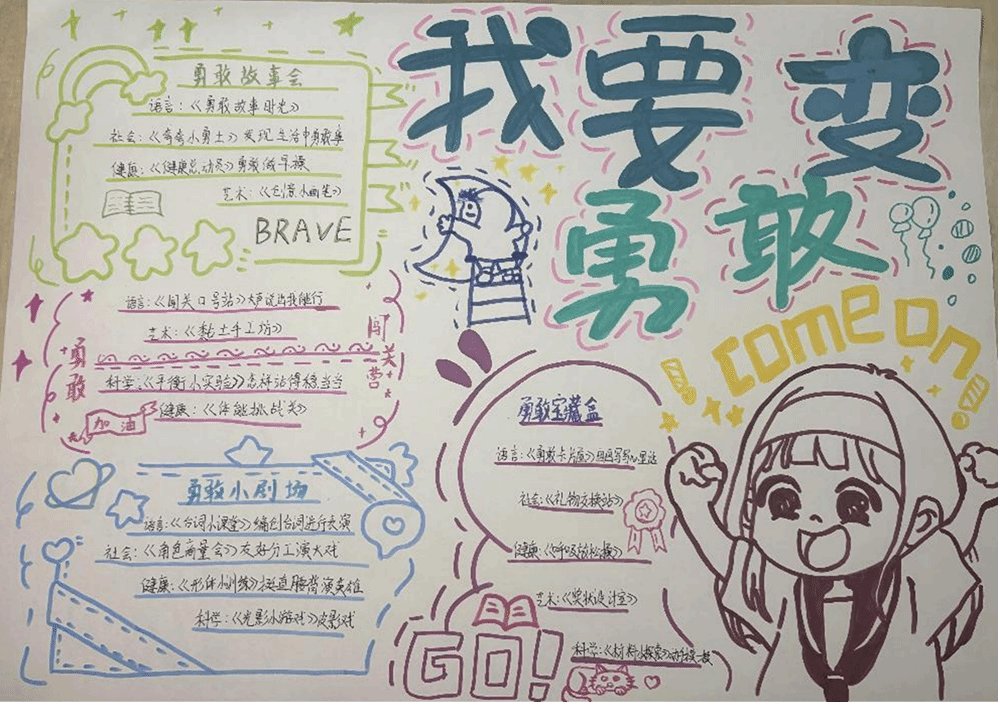 我要变
勇敢
come on!
!
勇敢故事会
语言:《勇敢故事时光》
社会:《夸夸小勇士》发现生活中勇敢事
健康:《健康总动员》勇敢做早操
艺术:《创意小画笔》
BRAVE
勇敢
闯关营
语言:《闯关口号站》大声说出我能行
艺术:《黏土手工坊》
科学:《平衡小实验》怎样站得稳当当
健康:《体能挑战关》
加油
勇敢小剧场
语言:《台词小课堂》编创台词进行表演
社会:《角色商量会》友好分工演大戏
健康:《形体小训练》挺直腰背演英雄
科学:《光影小游戏》皮影戏
勇敢宝藏盒
语言:《勇敢卡片屋》
社会:《礼物交换站》
健康:《呼吸放松操》
艺术:《奖状设计室》
科学:《材料小探索》
GO!